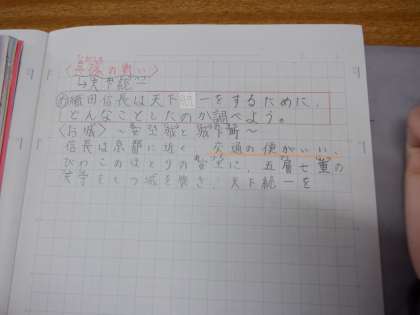 〈最後の戦い〉
↳天下統一
め 織田信長は天下統一をするために、
どんなことをしたのか調べよう。
〈お城〉～安土城と城下町～
信長は京都に近く、交通の便がいい、
びわこのほとりの安土に、五層七重の
天守をもつ城を築き、天下統一を